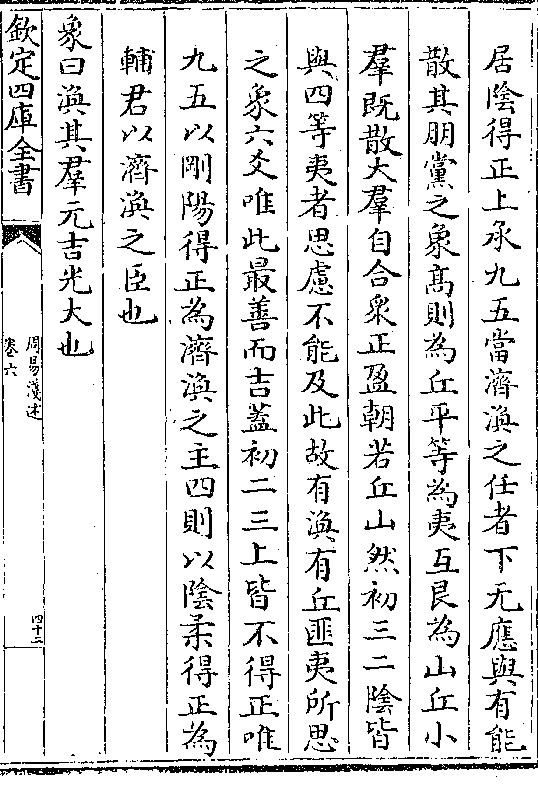 居陰得正上承九五當濟渙之任者下无應與有能
散其朋黨之象髙則為丘平等為夷互艮為山丘小
羣既散大羣自合衆正盈朝若丘山然初三二陰皆
與四等夷者思慮不能及此故有渙有丘匪夷所思
之象六爻唯此最善而吉蓋初二三上皆不得正唯
九五以剛陽得正為濟渙之主四則以陰柔得正為
輔君以濟渙之臣也
象曰渙其羣元吉光大也
欽定四庫全書
周易淺述
卷六
四十二